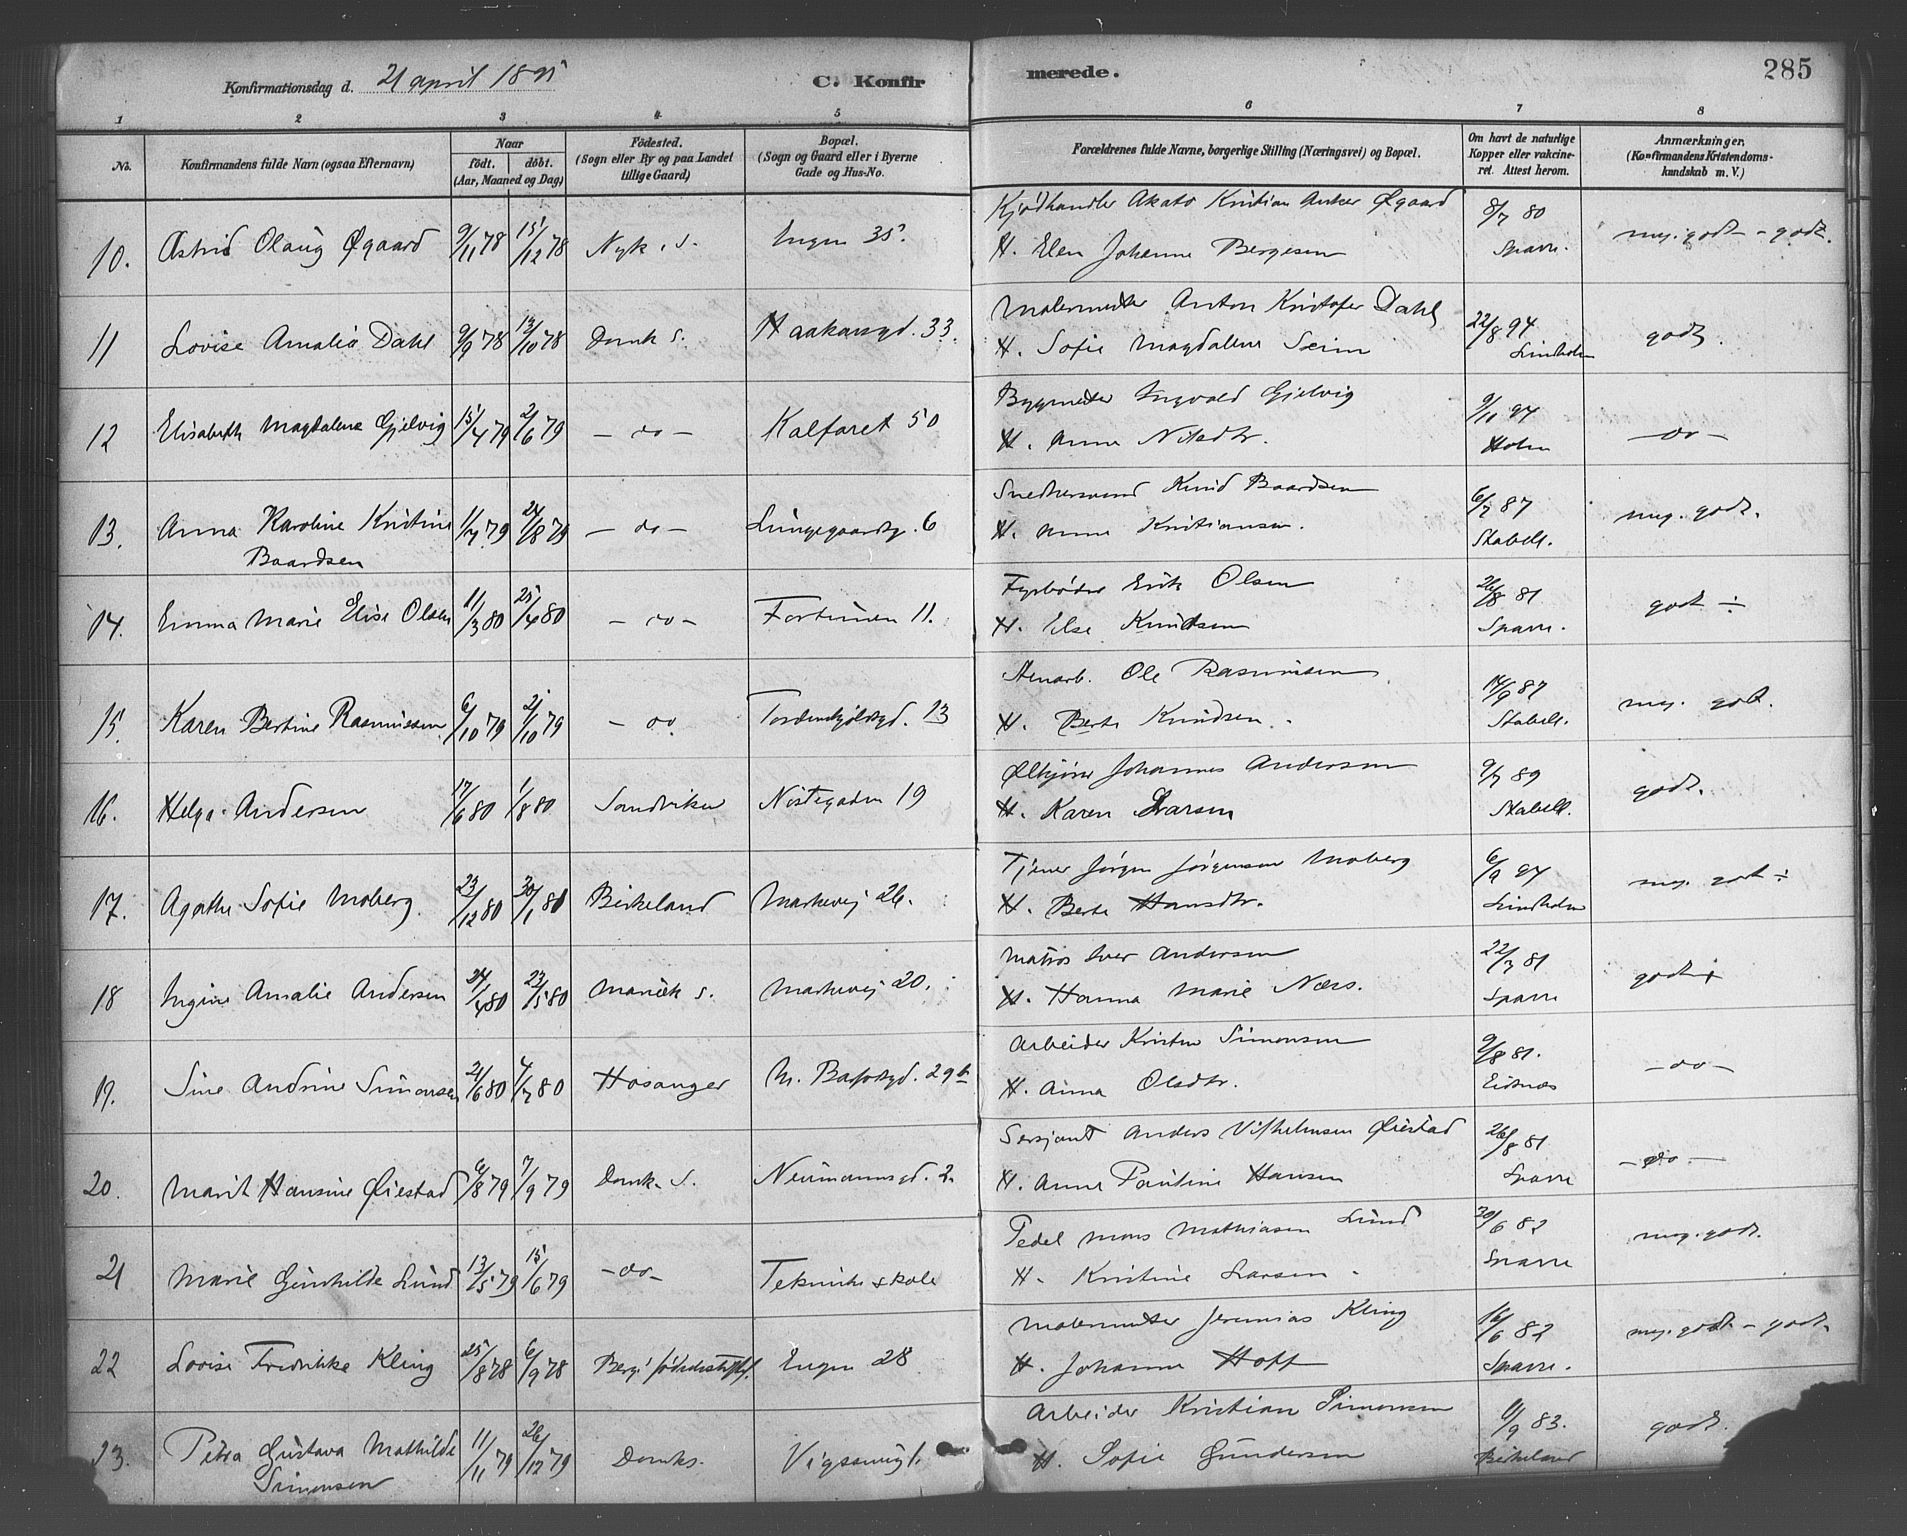 Konfirmationsdag d. 21 april 1895
C. Konfirmerede.
285
1 2 3 4 5 6 7 8
No.
Konfirmandens fulde Navn (ogsaa Efternavn)
Naar
födt. döbt.
(Aar, Maaned og Dag)
Födested.
(Sogn eller By og paa Landet
tillige Gaard)
Bopæl.
(Sogn og Gaard eller i Byerne
Gade og Hus-No.
Forældrenes fulde Navne, borgerlige Stilling (Næringsvei) og Bopæl.
Om havt de naturlige
Kopper eller vakcine-
ret. Attest herom.
Anmærkninger.
(Konfirmandens Kristendoms-
kundskab m. V.)
10. Astrid Olaug Øgaard 9/11 78 15/12 78 Nyk. s. Engen 35. Kjødhandler Akato Kristian Anker Øgaard 8/7 80 my. godt - godt.
H. Elen Johanne Bergesen Sparre.
11 Lovise Amalia Dahl 9/9 78 13/10 78 Domk s. Haakonsgd. 33. Malermester Anton Kristofer Dahl 22/8 94 godt.
H. Sofie Magdalene Seim Lindholm
12 Elisabeth Magdalene Gjelvig 15/4 79 2/6 79 - do - Kalfaret 50 Bygmester Ingvald Gjelvig 9/11 94 - do -
H. Anna Nilsdtr. Holm
13. Anna Karoline Kristine Baardsen 11/7 79 24/8 79 - do - Lungegaardsg. 6 Snedkersvend Knud Baardsen 6/7 87 my. godt.
H. Anne Kristiansen. Stabell.
14. Emma Marie Elise Olsen 11/3 80 25/4 80 - do - Fortunen 11. Fyrbøder Erik Olsen 26/8 81 godt ÷
H. Else Knudsen Sparre.
15. Karen Bertine Rasmussen 6/10 79 2/10 79 - do. Tordenskjoldsgd. 13 Stenarb. Ole Rasmussen 14/9 87 my. godt.
H. Berte Knudsen. Stabell.
16. Helga Andersen 17/6 80 1/8 80 Sandviken Nøstegaden 19 Ølkjører Johannes Andersen 9/7 89 godt.
H. Karen Larsen Stabell.
17. Agathe Sofie Moberg. 23/12 80 30/1 81 Birkeland Markevej 26. Tjener Jørgen Jørgensen Moberg 6/9 94 my. godt ÷
H. Berte Hansdtr. Lindholm
18 Ingine Amalie Andersen 24/4 80 23/5 80 Mariek s. Markevej 20. Matros Iver Andersen 22/3 81 godt ÷
H. Hanna Marie Næss. Sparre
19. Sine Andrine Simonsen 21/6 80 4/7 80 Hosanger N. Basfosgd. 29 b Arbeider Kristen Simonsen 9/8 81. - do -
H. Anna Olsdtr. Eidsnæs
20. Marit Hansine Øiestad 6/8 79 7/9 79 Domk. s. Neumannsgd. 2. Sersjant Anders Vilhelmsen Øiestad 26/8 81 - do -
H. Anne Pauline Hansen Sparre
21 Marie Gunhilde Lund 13/5 79 15/6 79 - do - Teknisk skole Pedel Mons Mathiasen Lund 20/6 82 my. godt.
H. Kristine Larsen. Sparre
22 Lovise Fredrikke Kling 25/8 78 6/9 78 Berg. fødselsstiftlse. Engen 28 Malermester Jeremias Kling 16/6 82 my. godt - godt.
H. Johanne Hoff Sparre.
23. Petra Gustava Mathilde Simonsen 11/11 79 26/12 79 Domks. Vigssmugl. Arbeider Kristian Simonsen 11/9 83. godt.
H. Sofie Gundersen Birkeland